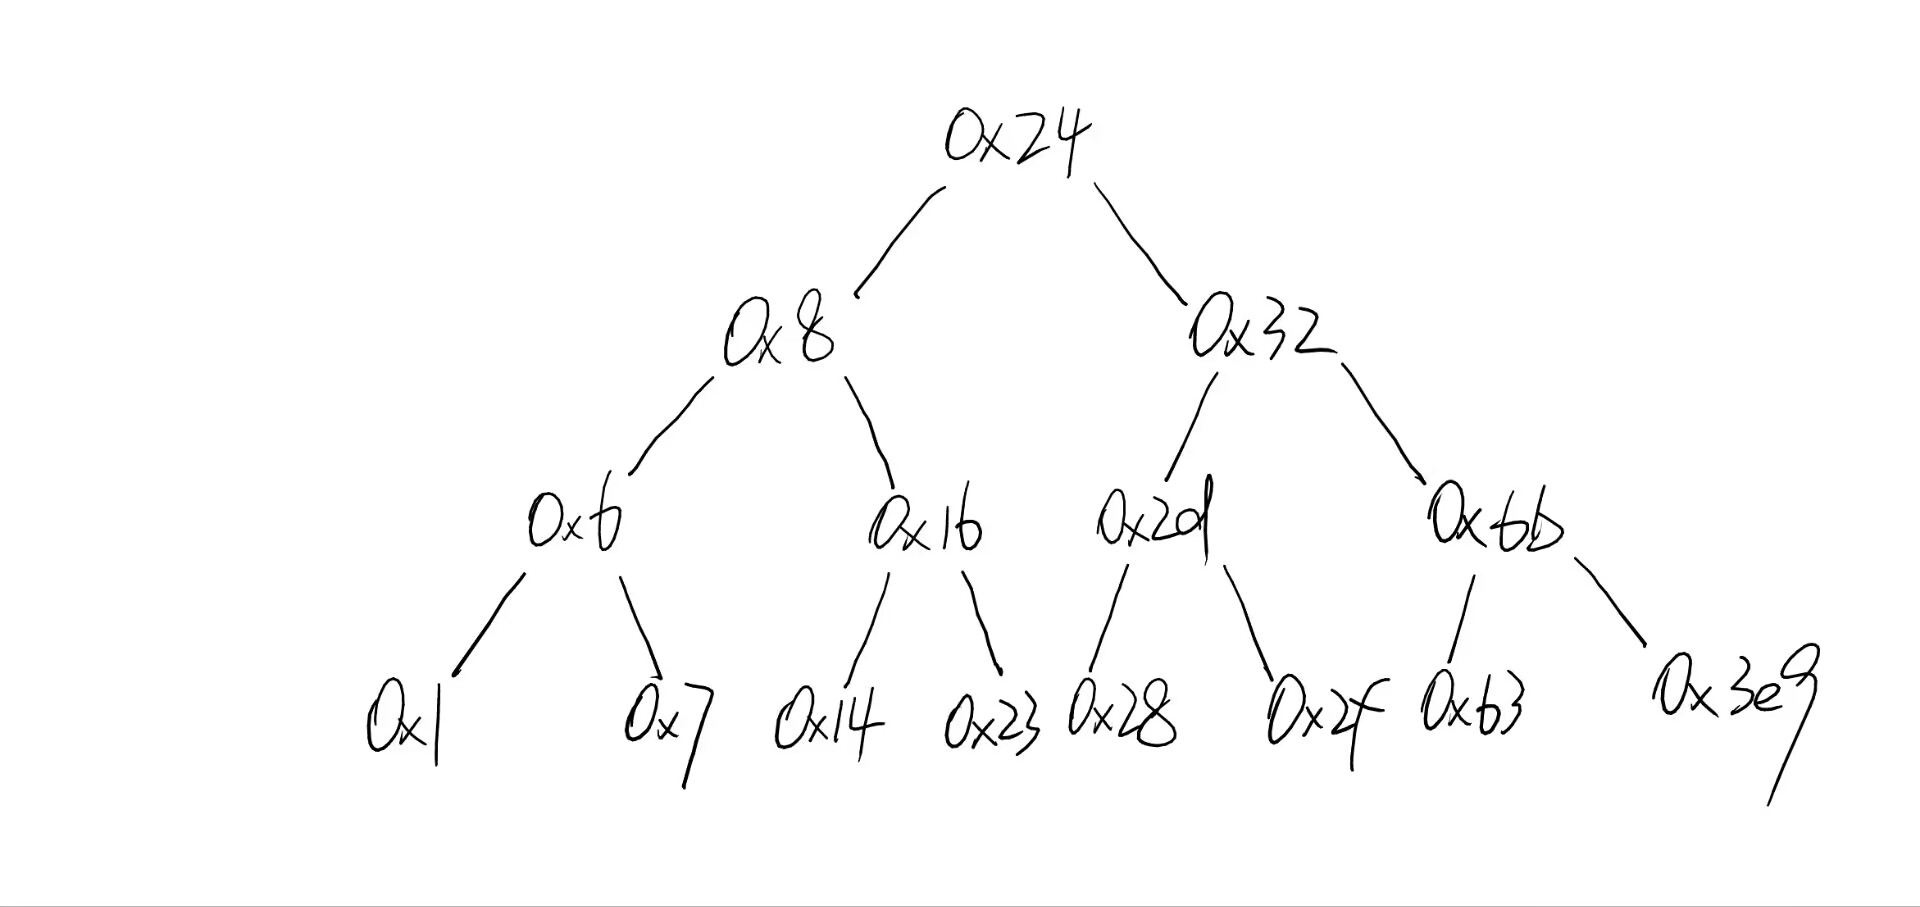 0x24
0x8 0x32
0x6 0x16 0x2d 0x6b
0x1 0x7 0x14 0x23 0x28 0x2f 0x63 0x3e9